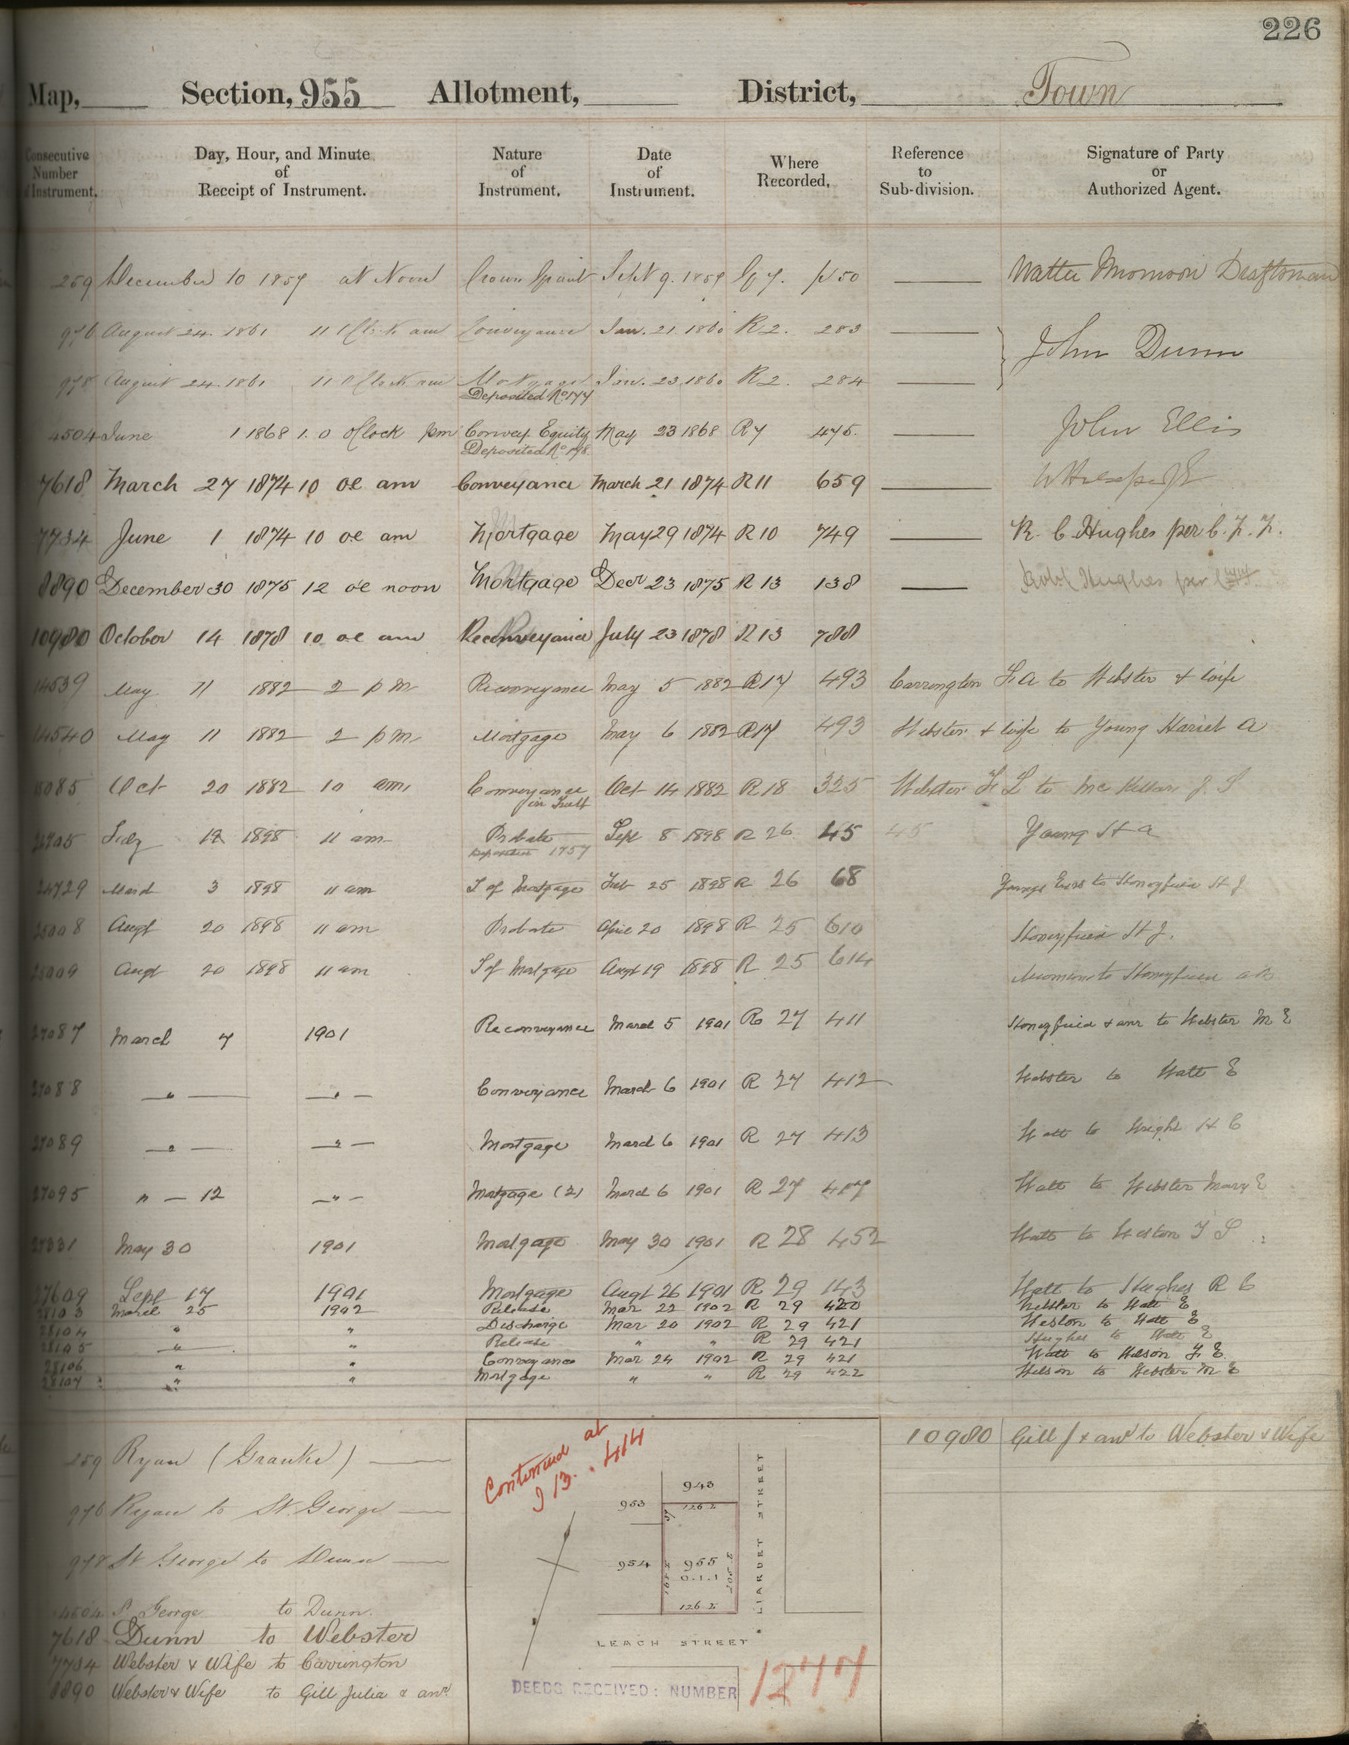 226
Map, Section, 955 Allotment, District, Town
Consecutive Number of Instrument. Day, Hour, and Minute of Receipt of Instrument. Nature of Instrument. Date of Instrument. Where Recorded. Reference to Sub-division. Signature of Party or Authorized Agent.
259 December 10 1859 at Noon Crown Grant Sept 9. 1859 G 7. p 50
976 August 24. 1861 11 O'Clock am Conveyance Jan. 21 1860 R 2. 283
John Dunn
978 August 24. 1861 11 O'Clock am Mortgage Jan. 23. 1860 R 2. 284
Deposited No 177
4504 June 1 1868 1. 0 oClock pm Convey Equity May 23 1868 R 7 475. John Ellis
Deposited No 178
7618 March 27 1874 10 oc am Conveyance March 21 1874 R 11 659
7734 June 1 1874 10 oc am Mortgage May 29 1874 R 10 749 R. C. Hughes per
8890 December 30 1875 12 oc noon Mortgage Decr 23 1875 R 13 138 Hughes per
10980 October 14 1878 10 oc am Reconveyance July 23 1878 R 13 788
14539 May 11 1882 2 pm Reconveyance May 5 1882 R 17 493 Carrington F. A to Webster & wife
14540 May 11 1882 2 pm Mortgage May 6 1882 R 17 493 Webster & wife to Young Harriet A
15085 Oct 20 1882 10 am Conveyance Oct 14 1882 R 18 325 Webster F L to McKellar J S
in Trust
1898 11 am Probate Sept 8 1898 R 26 45 45 Young H A
1757
24729 March 3 1898 11 am T of Mortgage Feb 25 1898 R 26 68 Youngs Exrs to Stoneyfield H J
Augt 20 1898 11 am Probate April 20 1898 R 25 610 Stoneyfield H J.
Augt 20 1898 11 am T of Mortgage Augt 19 1898 R 25 614 to Stoneyfield
27087 March 7 1901 Reconveyance March 5 1901 R 27 411 Stoneyfield & anr to Webster M E
27088 " " Conveyance March 6 1901 R 27 412 Webster to Watt E
27089 " " Mortgage March 6 1901 R 27 413 Watt to Wright H C
27095 " 12 " Mortgage (2) March 6 1901 R 27 417 Watt to Webster Mary E
27331 May 30 1901 Mortgage May 30 1901 R 28 452 Watt to Weston T S
27609 Sept 17 1901 Mortgage Augt 26 1901 R 29 143 Watt to Hughes R C
28103 March 25 1902 Release Mar 22 1902 R 29 420 Webster to Watt E
28104 " " Discharge Mar 20 1902 R 29 421 Weston to Watt E
28105 " " Release " " R 29 421 Hughes to Watt E
28106 " " Conveyance Mar 24 1902 R 29 421 Watt to Wilson F. E
28107 " " Mortgage " " R 29 422 Wilson to Webster M E
259 Ryan (Grantee)
976 Ryan to St. George
978 St George to Dunn
4504 St George to Dunn.
7618 Dunn to Webster
7734 Webster & Wife to Carrington
8890 Webster & Wife to Gill Julia & anr
Continued at
J 13. 414
943
953
126.2
954
955
0.1.1
126.2
LIARDET STREET
LEACH STREET
DEEDS RECEIVED: NUMBER 1277
10980 Gill J & anr to Webster & Wife